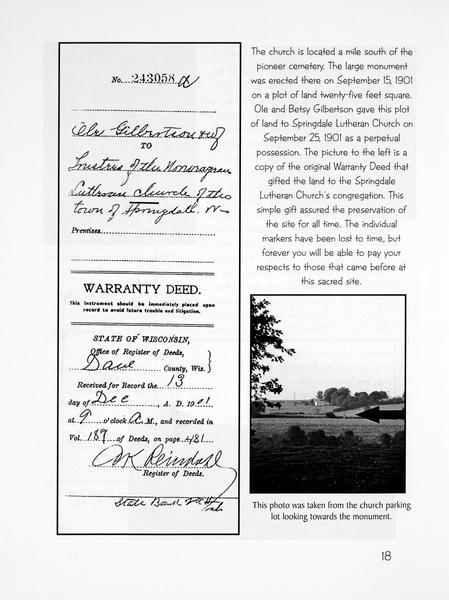 No. 243058 a
Ole Gilbertson & wf
TO
Trustees of the Norwegian
Lutheran Church of the
town of Springdale. Wis
Premises
WARRANTY DEED.
This instrument should be immediately placed upon
record to avoid future trouble and litigation.
STATE OF WISCONSIN,
Office of Register of Deeds,
Dane County, Wis.
Received for Record the 13
day of Dec, A. D. 1901
at 9 o'clock A. M., and recorded in
Vol. 189 of Deeds, on page 481
Register of Deeds.
State Bank
The church is located a mile south of the
pioneer cemetery. The large monument
was erected there on September 15, 1901
on a plot of land twenty-five feet square.
Ole and Betsy Gilbertson gave this plot
of land to Springdale Lutheran Church on
September 25, 1901 as a perpetual
possession. The picture to the left is a
copy of the original Warranty Deed that
gifted the land to the Springdale
Lutheran Church's congregation. This
simple gift assured the preservation of
the site for all time. The individual
markers have been lost to time, but
forever you will be able to pay your
respects to those that came before at
this sacred site.
This photo was taken from the church parking
lot looking towards the monument.
18